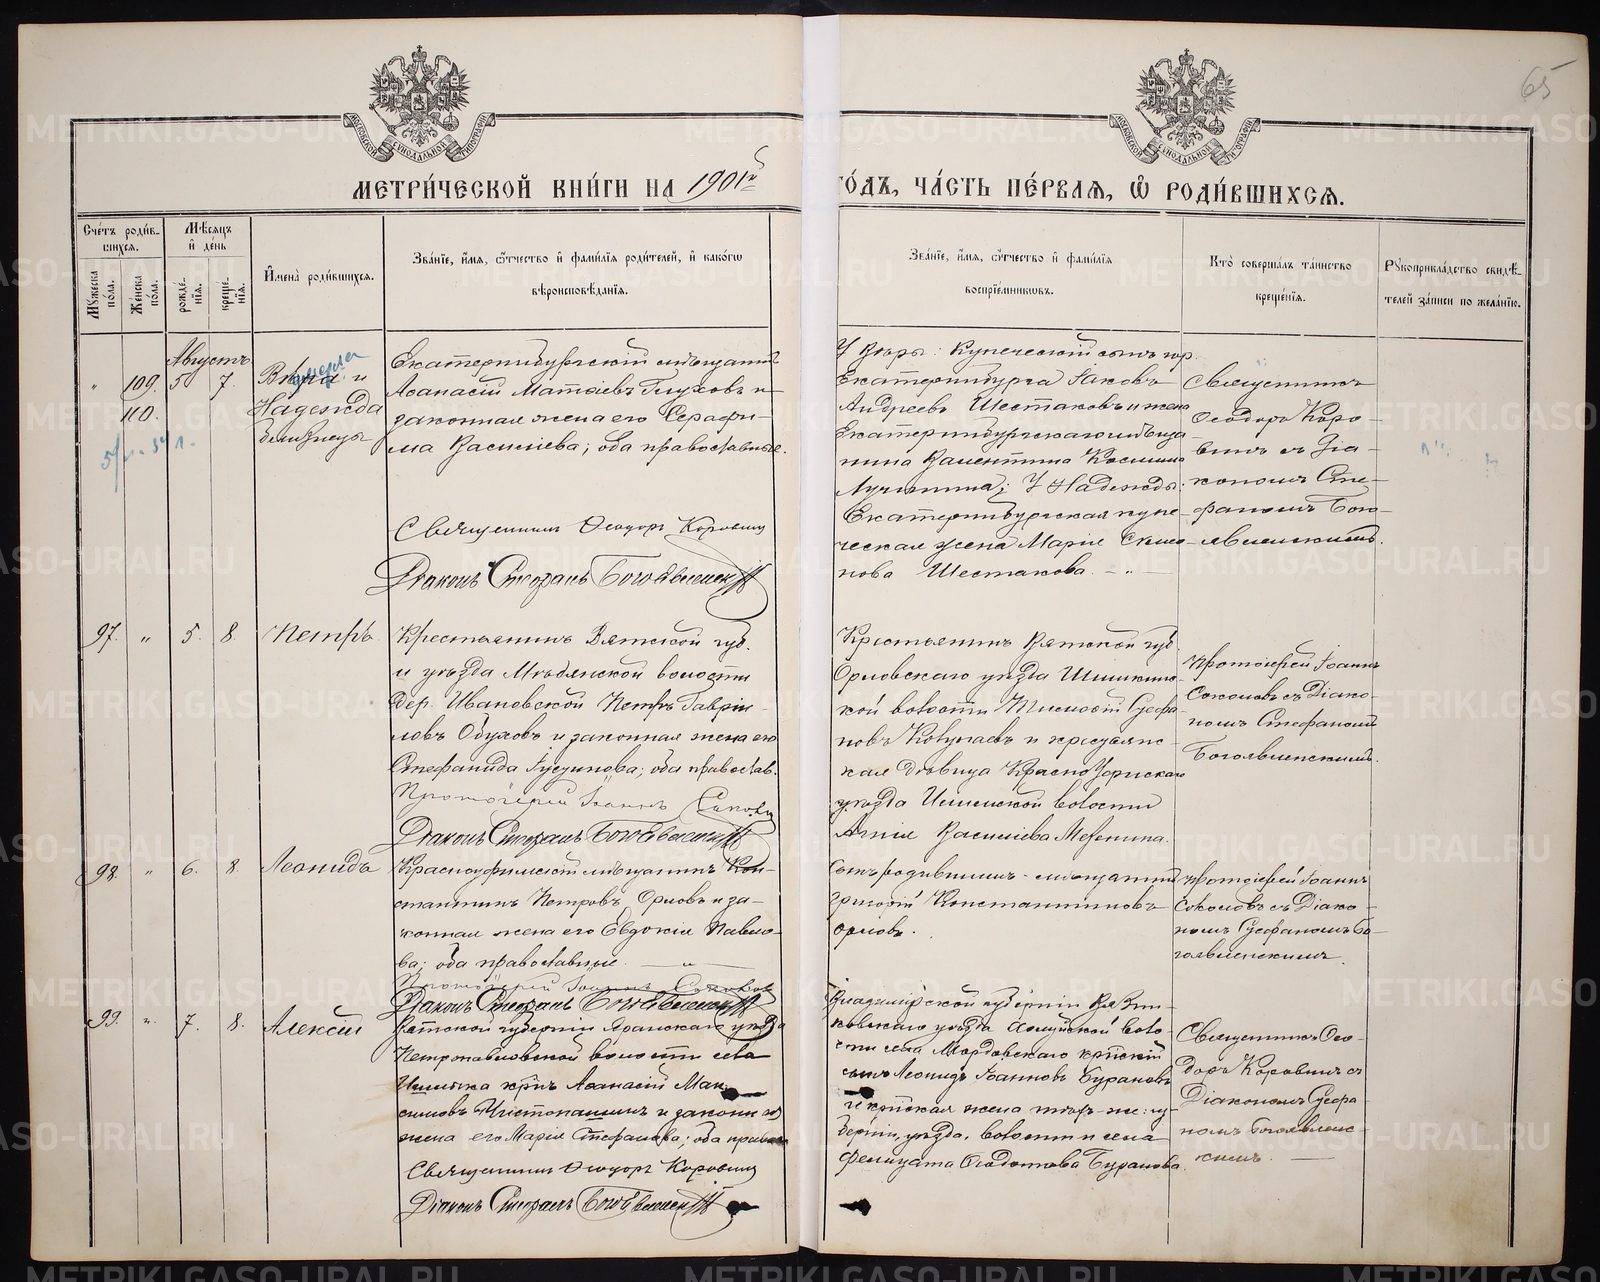 65
МЕТРИ́ЧЕСКОЙ КНИ́ГИ НА 1901й
ГО́ДЪ, ЧА́СТЬ ПЕ́РВАЯ, Ѿ РОДИ́ВШИХСЯ.
Сче́тъ роди́в-
шихся.
Му́жеска
по́ла.
Же́нска
по́ла.
Мѣ́сяцъ
и҆ де́нь
рожде́-
нія.
креще́-
нія.
И҆мена̀ роди́вшихся.
Зва́нїе, и҆́мя, ѻ҆́тчество и҆ фами́лїя роди́телей, и҆ како́гѡ
вѣроисповѣ́данїя.
Зва́нїе, и҆́мя, ѻ҆́тчество и҆ фами́лїя
воспрїе́мниковъ.
Кто̀ соверша́лъ та́инство
креще́нїя.
Рꙋкоприкла́дство свидѣ́-
телей за́писи по жела́нїю.
Августъ
" 109. 5 7.
110.
Вѣра и
Надежда
близнецы
Екатеринбургскій мѣщанинъ
Аѳанасій Матѳіевъ Глуховъ и
законная жена его Серафи-
ма Васильева; оба православные.
Священникъ Ѳеодоръ Коровинъ
Діаконъ Стефанъ Богоявленскій
У Вѣры: Купеческій сынъ гор.
Екатеринбурга Іаковъ
Андреевъ Шестаковъ и жена
Екатеринбургскаго мѣща
нина Валентина Космина
Лучинина; У Надежды:
Екатеринбургская купе-
ческая жена Марія Симо-
нова Шестакова. — " —
Священникъ
Ѳеодоръ Коро-
винъ съ Діа-
кономъ Сте-
фаномъ Бого-
явленскимъ.
97. " 5. 8. Петръ
Крестьянинъ Вятской губ.
и уѣзда Мѣдянской волости
дер. Ивановской Петръ Гаврі-
ловъ Обуховъ и законная жена его
Стефанида Іустинова; оба православ.
Протоіерей Іоаннъ Соколовъ
Діаконъ Стефанъ Богоявленскій
Крестьянинъ Вятской губ.
Орловскаго уѣзда Шишкинс-
кой волости Тимоѳей Стефа
новъ и крестьянс-
кая дѣвица Красноуфимскаго
уѣзда волости
Агнія Васильева
Протоіерей Іоаннъ
Соколовъ съ Діако-
номъ Стефаномъ
Богоявленскимъ.
98. " 6. 8. Леонидъ
Красноуфимскій мѣщанинъ Кон-
стантинъ Петровъ Орловъ и за-
конная жена его Евдокія Павло-
ва; оба православные. — " —
Протоіерей Іоаннъ Соколовъ
Діаконъ Стефанъ Богоявленскій
мѣщанинъ
Григорій Константиновъ
Орловъ.
Протоіерей Іоаннъ
Соколовъ съ Діако-
номъ Стефаномъ Бо-
гоявленскимъ.
99. " 7. 8. Алексій
Вятской губерніи Яранскаго уѣзда
Петропавловской волости села
кр̄нъ Аѳанасій Мак-
симовъ Чистопашинъ и законн. его
жена его Марія Стефанова; оба правосл.
Священникъ Ѳеодоръ Коровинъ
Діаконъ Стефанъ Богоявленскій
Владимірской губерніи Вязни-
ковскаго уѣзда воло-
сти села Мордовскаго кр̄нскій
сынъ Леонидъ Іоанновъ Бурановъ
и кр̄нская жена той-же: гу-
берніи, уѣзда, волости и села
Фелицата Ѳеодотова Буранова.
Священникъ Ѳео-
доръ Коровинъ съ
Діакономъ Стефа-
номъ Богоявленс-
кимъ. —